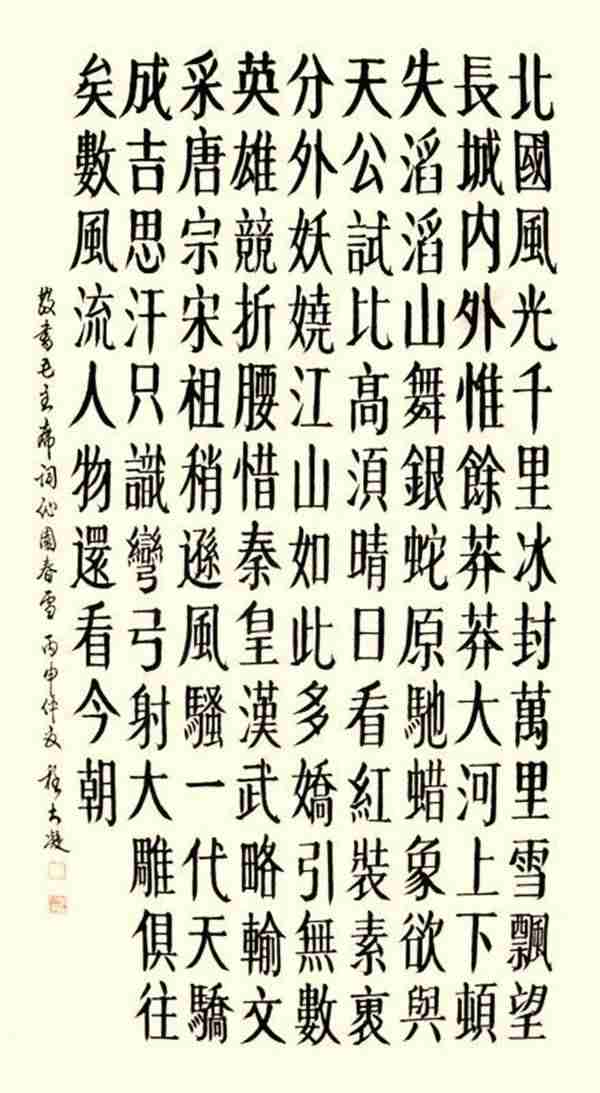 北國風光千里冰封萬里雪飄望
長城内外惟餘莽莽大河上下頓
失滔滔山舞銀蛇原馳蜡象欲與
天公試比髙湏晴日看紅裝素裹
分外妖嬈江山如此多嬌引無數
英雄競折腰惜秦皇漢武略輸文
采唐宗宋祖稍遜風騷一代天驕
成吉思汗只識彎弓射大雕俱往
矣數風流人物還看今朝
敬書毛主席詞沁園春雪 丙申仲夏